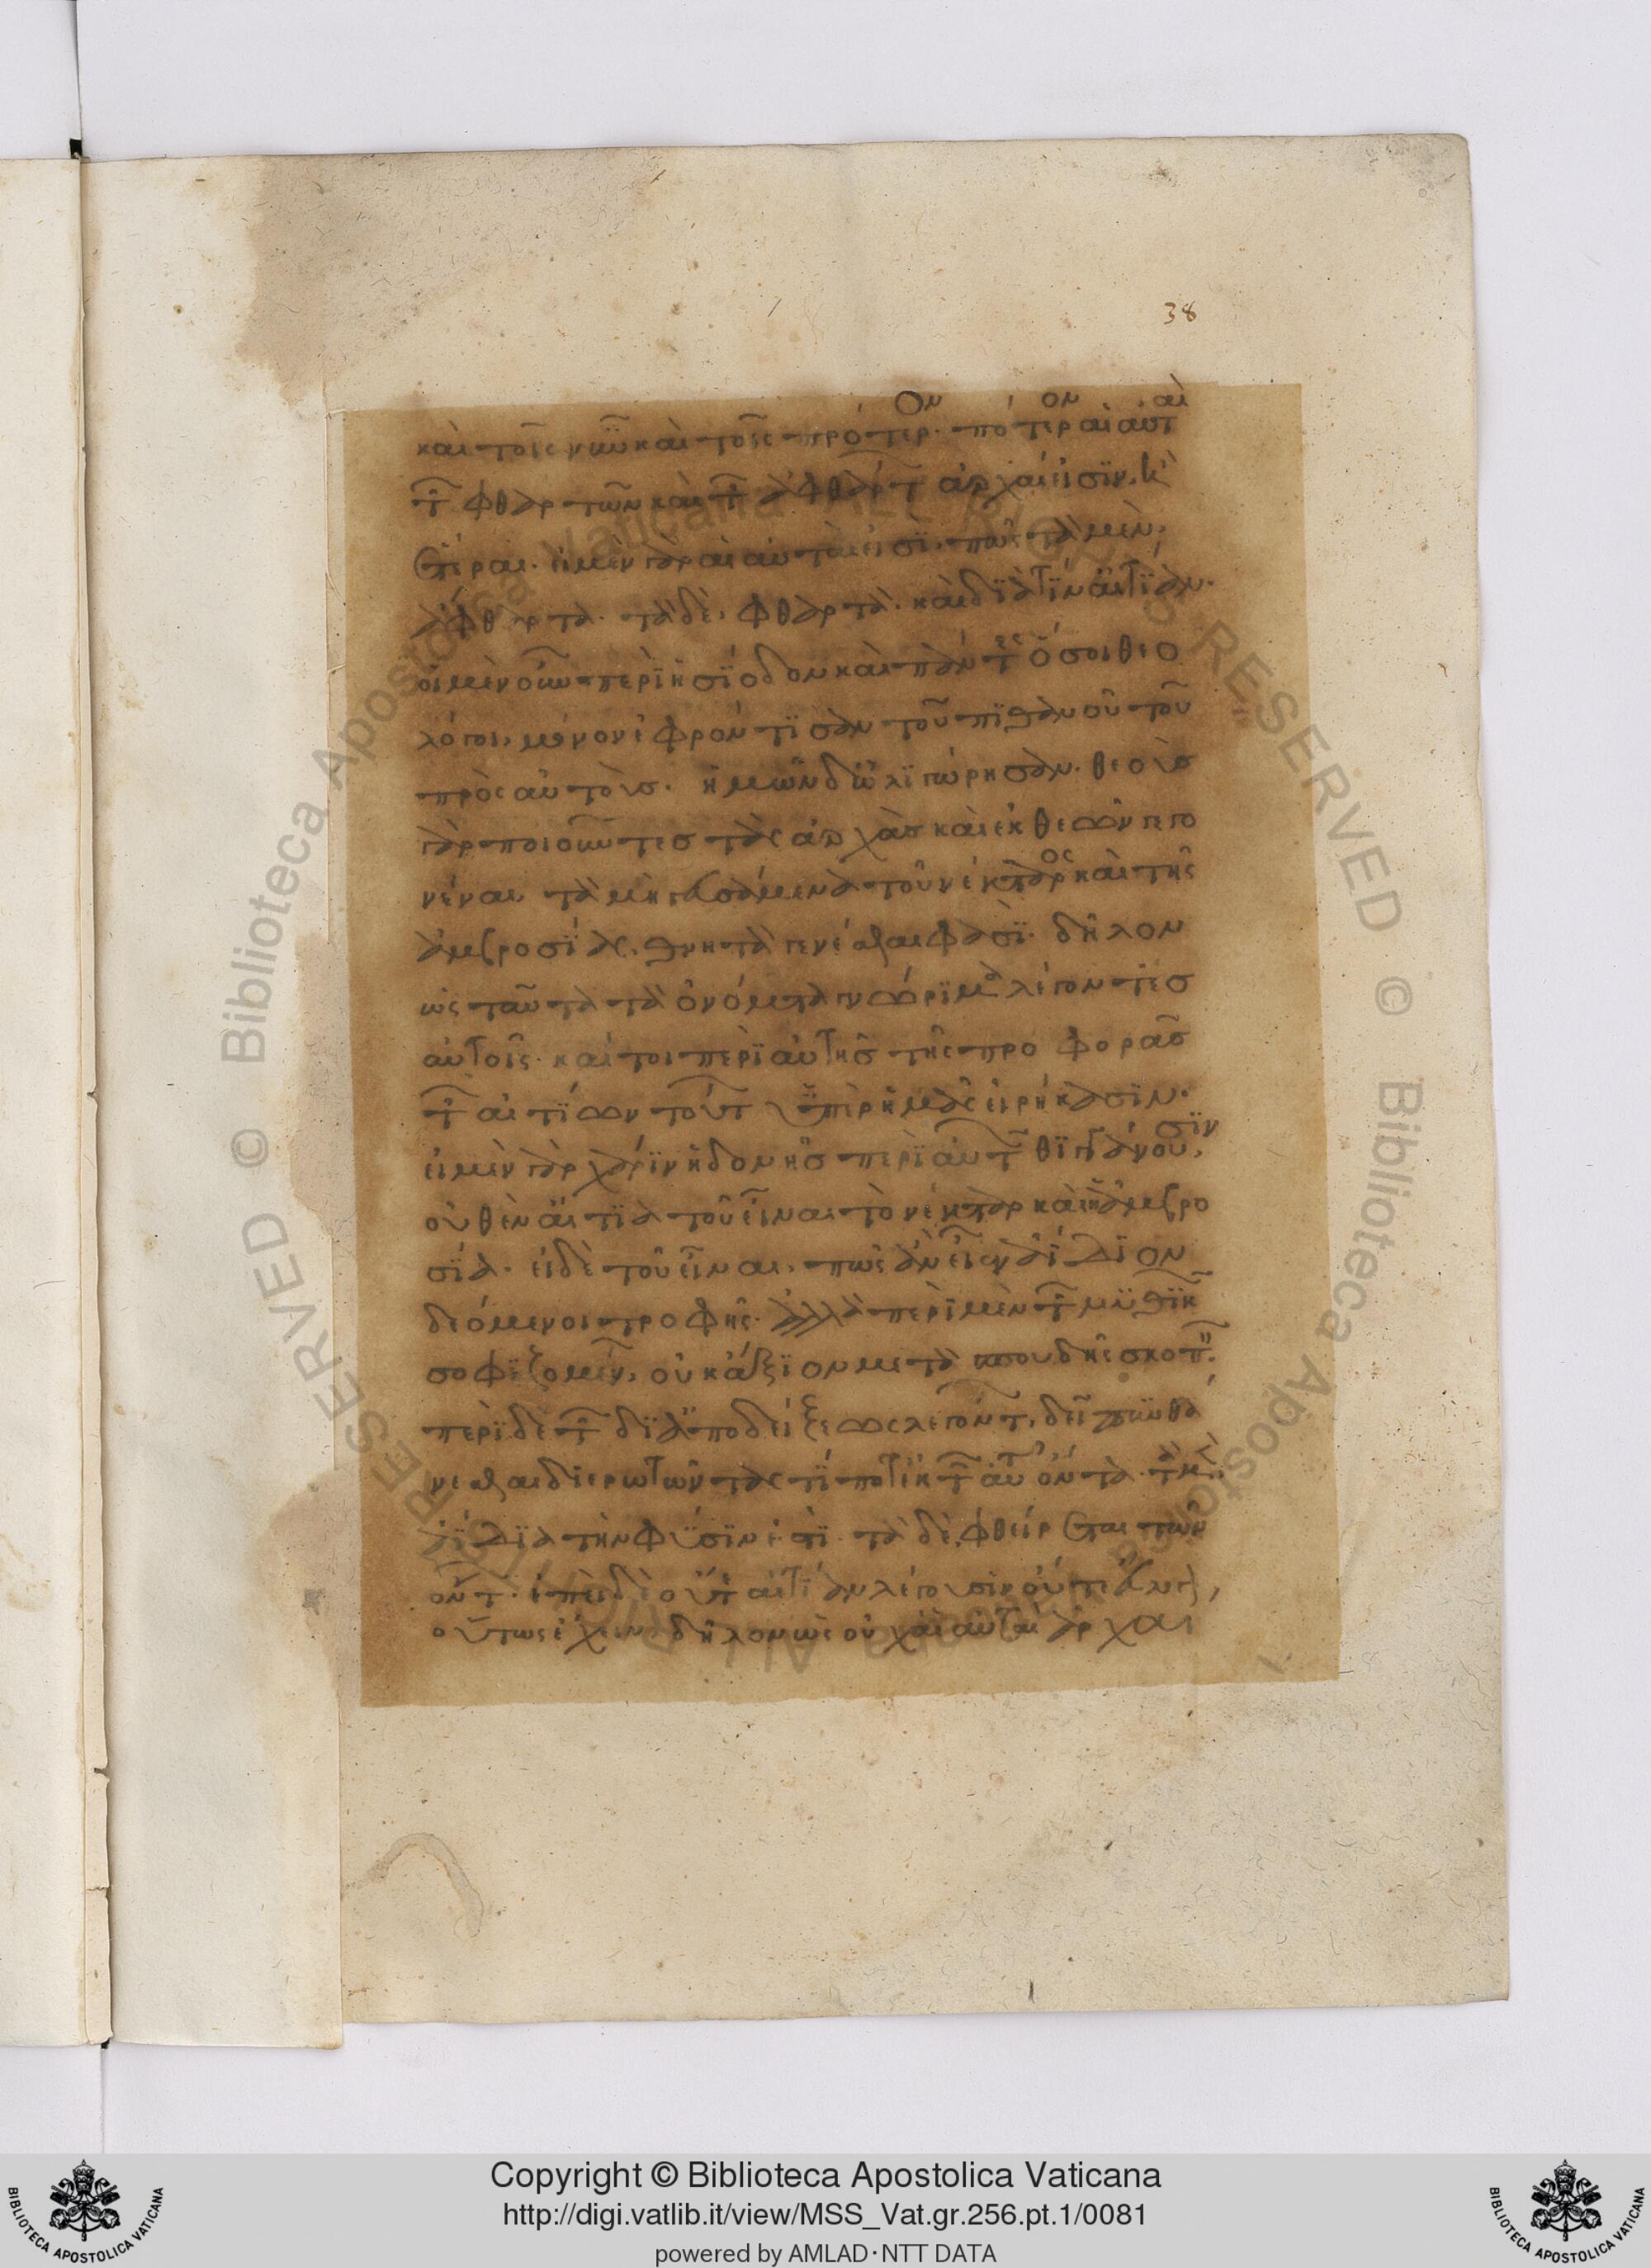 38
καὶ τοῖς νῦν καὶ τοῖς πρότερον· πότερον αἱ αὐταὶ
τῶν φθαρτῶν καὶ τῶν ἀφθάρτων ἀρχαί εἰσϊν. ἢ
ἕτεραι. εἰ μὲν γὰρ αἱ αὐταί εἰσϊ. πῶς τὰ μὲν,
ἄφθαρτα. τὰ δὲ, φθαρτὰ. καὶ δϊὰ τίν' αἰτϊαν.
οἱ μὲν οὖν περὶ ἡσΐοδον καὶ πάντες ὅσοι θεο
λόγοι, μόνον ἐφρόντϊσαν τοῦ πϊθανοῦ τοῦ
πρὸς αὑτοὺσ. ἡμῶν δ' ὠλϊγώρησαν. θεοὺσ
γὰρ ποιοῦντεσ τὰς ἀρχὰσ καὶ ἐκ θεῶν γεγο
νέναι, τὰ μὴ γευσάμενα τοῦ νέκταρος καὶ τῆς
ἀμβροσΐας. θνητὰ γενέσθαι φασΐ. δῆλον
ὡς ταῦτα τὰ ὀνόματα γνώρϊμα λέγοντεσ
αὑτοῖς. καίτοι περὶ αὐτῆσ τῆς προφορᾶσ
τῶν αἰτΐων τούτων ὑπὲρ ἡμᾶς εἰρήκασϊν.
εἰ μὲν γὰρ χάρϊν ἡδονῆσ περὶ αὐτῶν θϊγγάνουσϊν,
οὐθὲν αἴτϊα τοῦ εἶναι τὸ νέκταρ καὶ ἡ ἀμβρο
σΐα. εἰ δὲ τοῦ εἶναι, πῶς ἂν εἶεν ἀΐδϊοι
δεόμενοι τροφῆς. ἀλλὰ περὶ μὲν τῶν μυθϊκῶς
σοφϊζομένων, οὐκ ἄξϊον μετὰ σπουδῆς σκοπεῖν.
περὶ δὲ τῶν δϊ' ἀποδείξεως λεγόντων, δεῖ πυνθά
νεσθαι διερωτῶντας τΐ ποτ' ἐκ τῶν αὐτῶν ὄντα τὰ μὲν
ἀΐδϊα τὴν φύσϊν ἐστϊ. τὰ δὲ, φθείρεται τῶν
ὄντων. ἐπεὶ δὲ οὔτ' αἰτΐαν λέγουσϊν οὔτε εὔλογον,
οὕτως ἔχειν, δῆλον ὡς οὐχ αἱ αὐταὶ ἀρχαὶ
Copyright © Biblioteca Apostolica Vaticana
http://digi.vatlib.it/view/MSS_Vat.gr.256.pt.1/0081
powered by AMLAD·NTT DATA
BIBLIOTECA APOSTOLICA VATICANA
BIBLIOTECA APOSTOLICA VATICANA